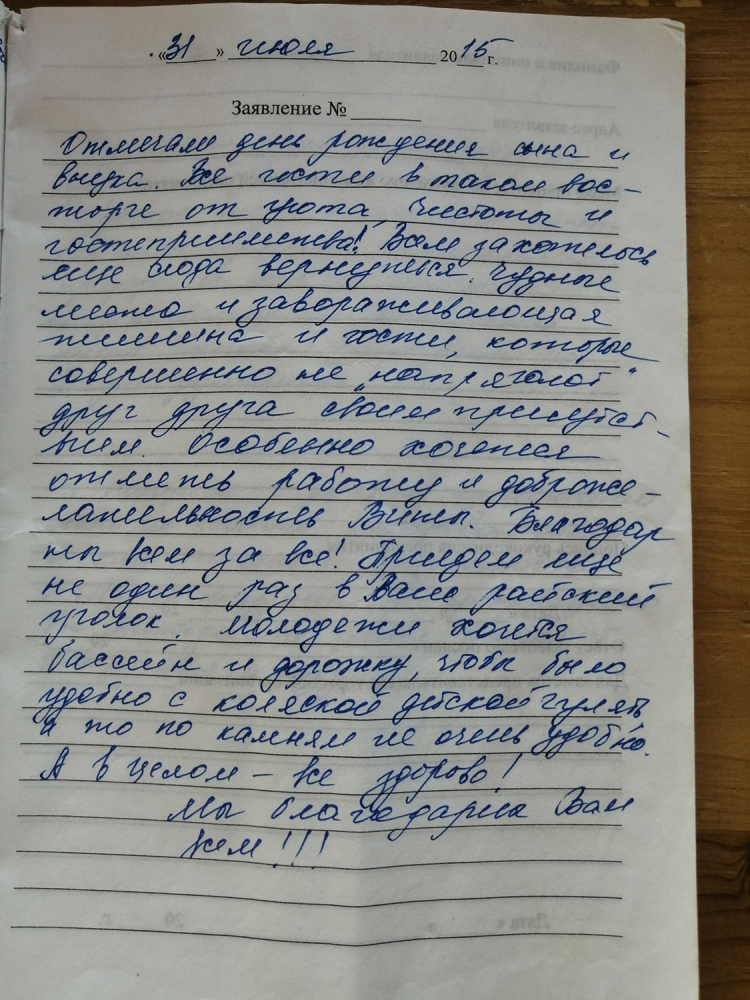 «31» июля 2015 г.
Заявление №
Отмечали день рождения сына и
внука. Все гости в таком вос-
торге от уюта, чистоты и
гостеприимства! Всем захотелось
еще сюда вернуться. Чудные
места и завораживающая
тишина и гости, которые
совершенно не „напрягают"
друг друга своим присутст-
вием. Особенно хочется
отметь работу и доброже-
лательность Виты. Благодар
ны всем за все! Приедем ещё
не один раз в Ваш райский
уголок. Молодежи хочется
бассейн и дорожку, чтобы было
удобно с коляской детской гулять
а то по камням не очень удобно.
А в целом – все здорово!
Мы благодарны Вам
всем!!!